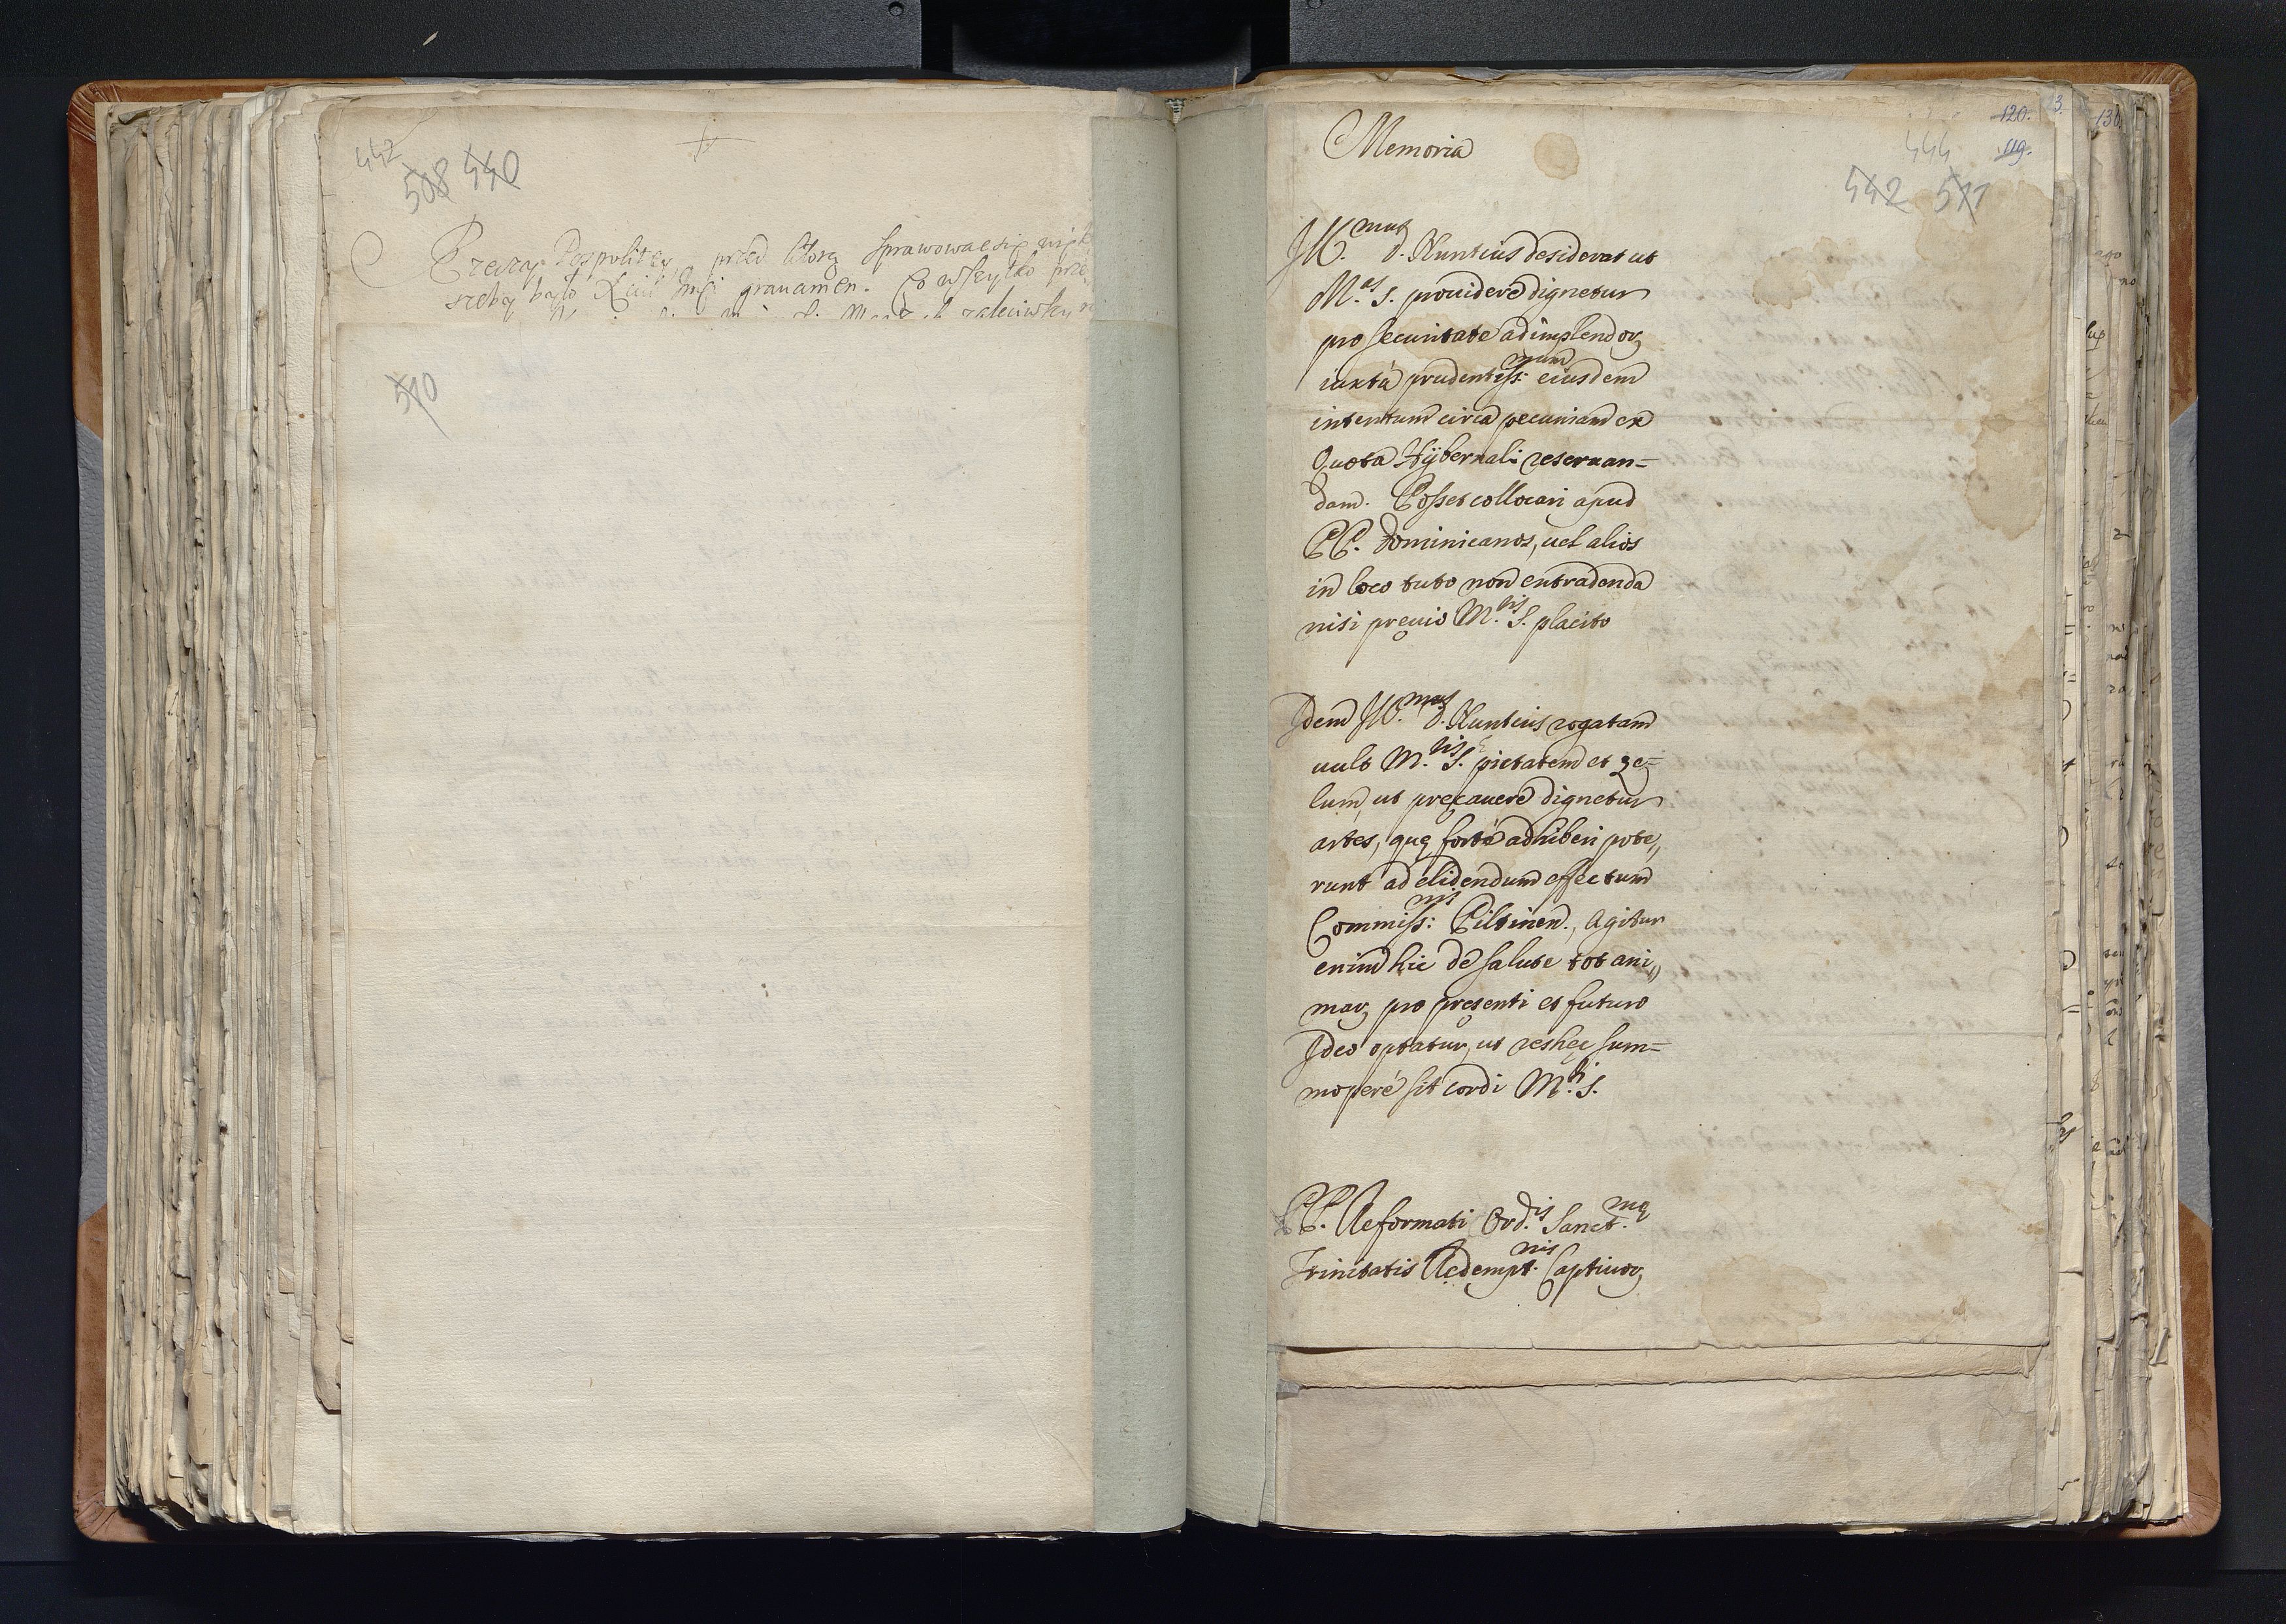 442
508 440
Rzecząp. Pospolitey przed ktorą sprawowac się
gravamen. wszytko
510
120.
119.
444
442 511
Memoria
Ill.mus D. Nuntius desiderat ut
M.as S. prouidere dignetur
pro securitate adimplendor,
iuxta prudentiss:mum eiusdem
intentum circa pecuniam ex
Quota Hÿbernali reseruan=
dam. Posset collocari apud
PP. Dominicanos, uel alios
in loco tuto non extradenda
nisi pręuio M.tis S. placito
Idem Ill.mus D. Nuntius rogatam
uult M.tis S. pietatem et ze=
lum, ut pręcauere dignetur
artes, quę fortè adhiberi pote„
runt ad elidendum effectum
Commiss:nis Piltinen., agitur
enim hic de salute tot ani„
mar, pro pręsenti et futuro
Ideo optatur, ut res hęc sum=
moperé sit cordi M.ti S.
PP. Reformati Ord.is Sanct.mę
Trinitatis Redempt.nis Captiuor,